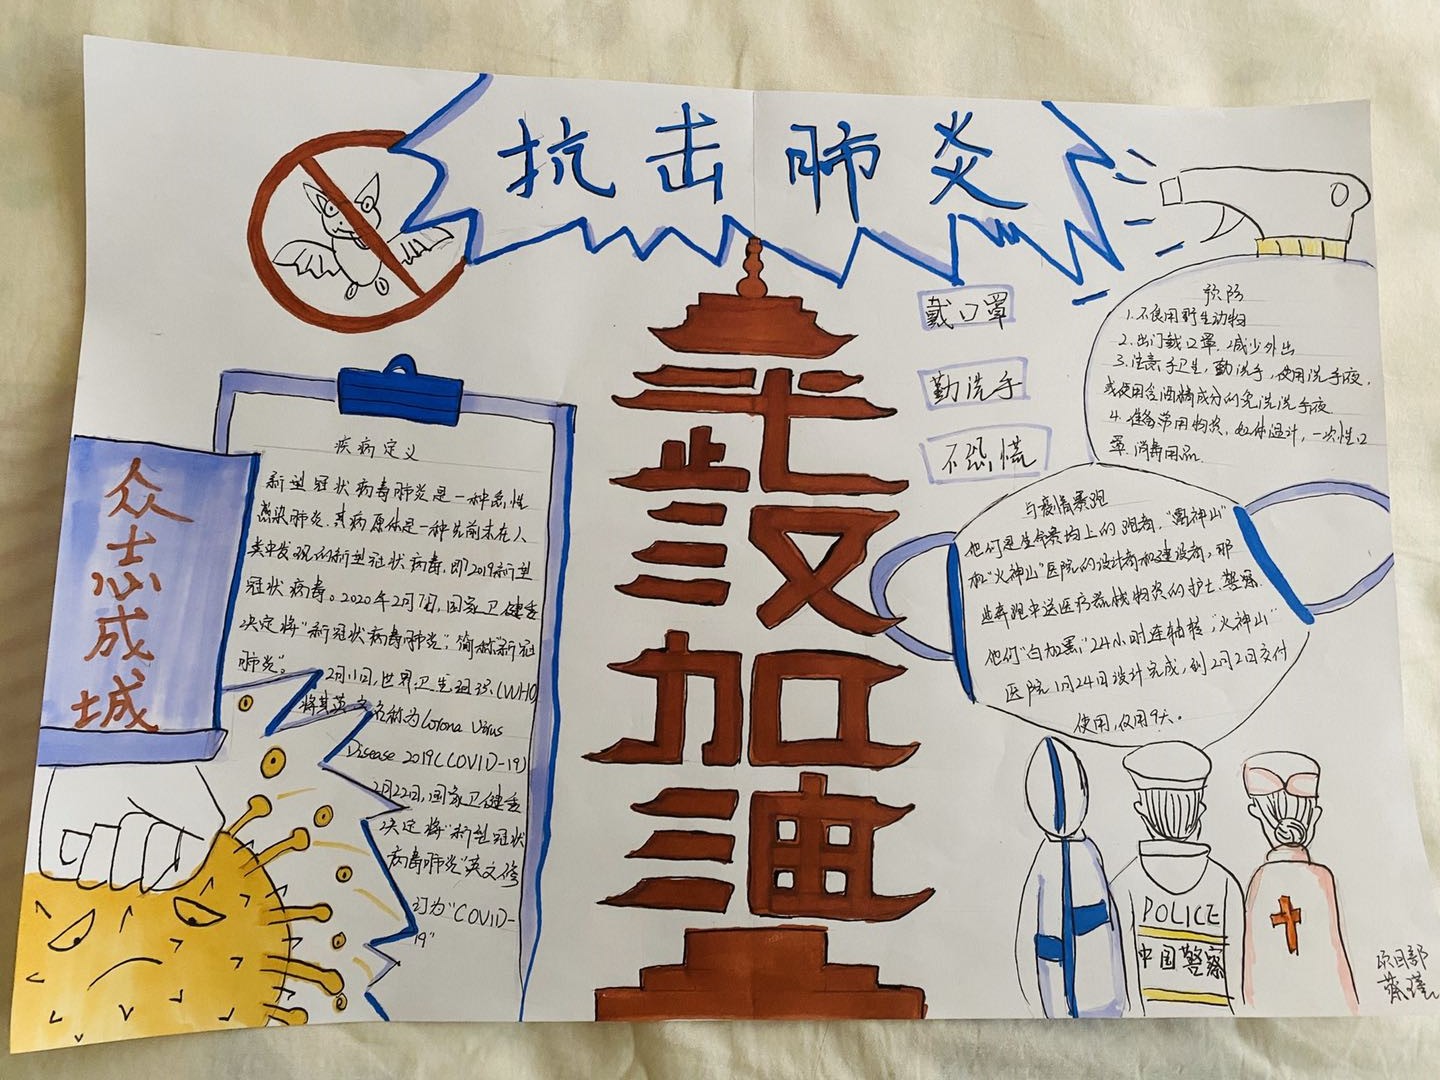 抗击肺炎
武汉加油
众志成城
疾病定义
新型冠状病毒肺炎是一种急性
感染肺炎,其病原体是一种先前未在人
类中发现的新型冠状病毒,即2019新型
冠状病毒。2020年2月7日,国家卫健委
决定将“新冠状病毒肺炎”,简称“新冠
肺炎”。
2月11日,世界卫生组织(WHO)
将其英文名称为Corona Virus
Disease 2019(COVID-19)
2月22日,国家卫健委
决定将“新型冠状
病毒肺炎”英文修
订为“COVID-
19”
戴口罩
勤洗手
不恐慌
预防
1.不食用野生动物
2.出门戴口罩,减少外出
3.注意手卫生,勤洗手,使用洗手液,
或使用含酒精成分的免洗洗手液
4.准备常用物资,如体温计,一次性口
罩.消毒用品.
与疫情赛跑
他们是生命赛场上的跑者,“雷神山”
和“火神山”医院的设计者和建设者,那
些奔跑中送医疗器械物资的护士.警察.
他们“白加黑”,24小时连轴转,“火神山”
医院1月24日设计完成,到2月2日交付
使用,仅用9天。
POLICE
中国警察
项目部